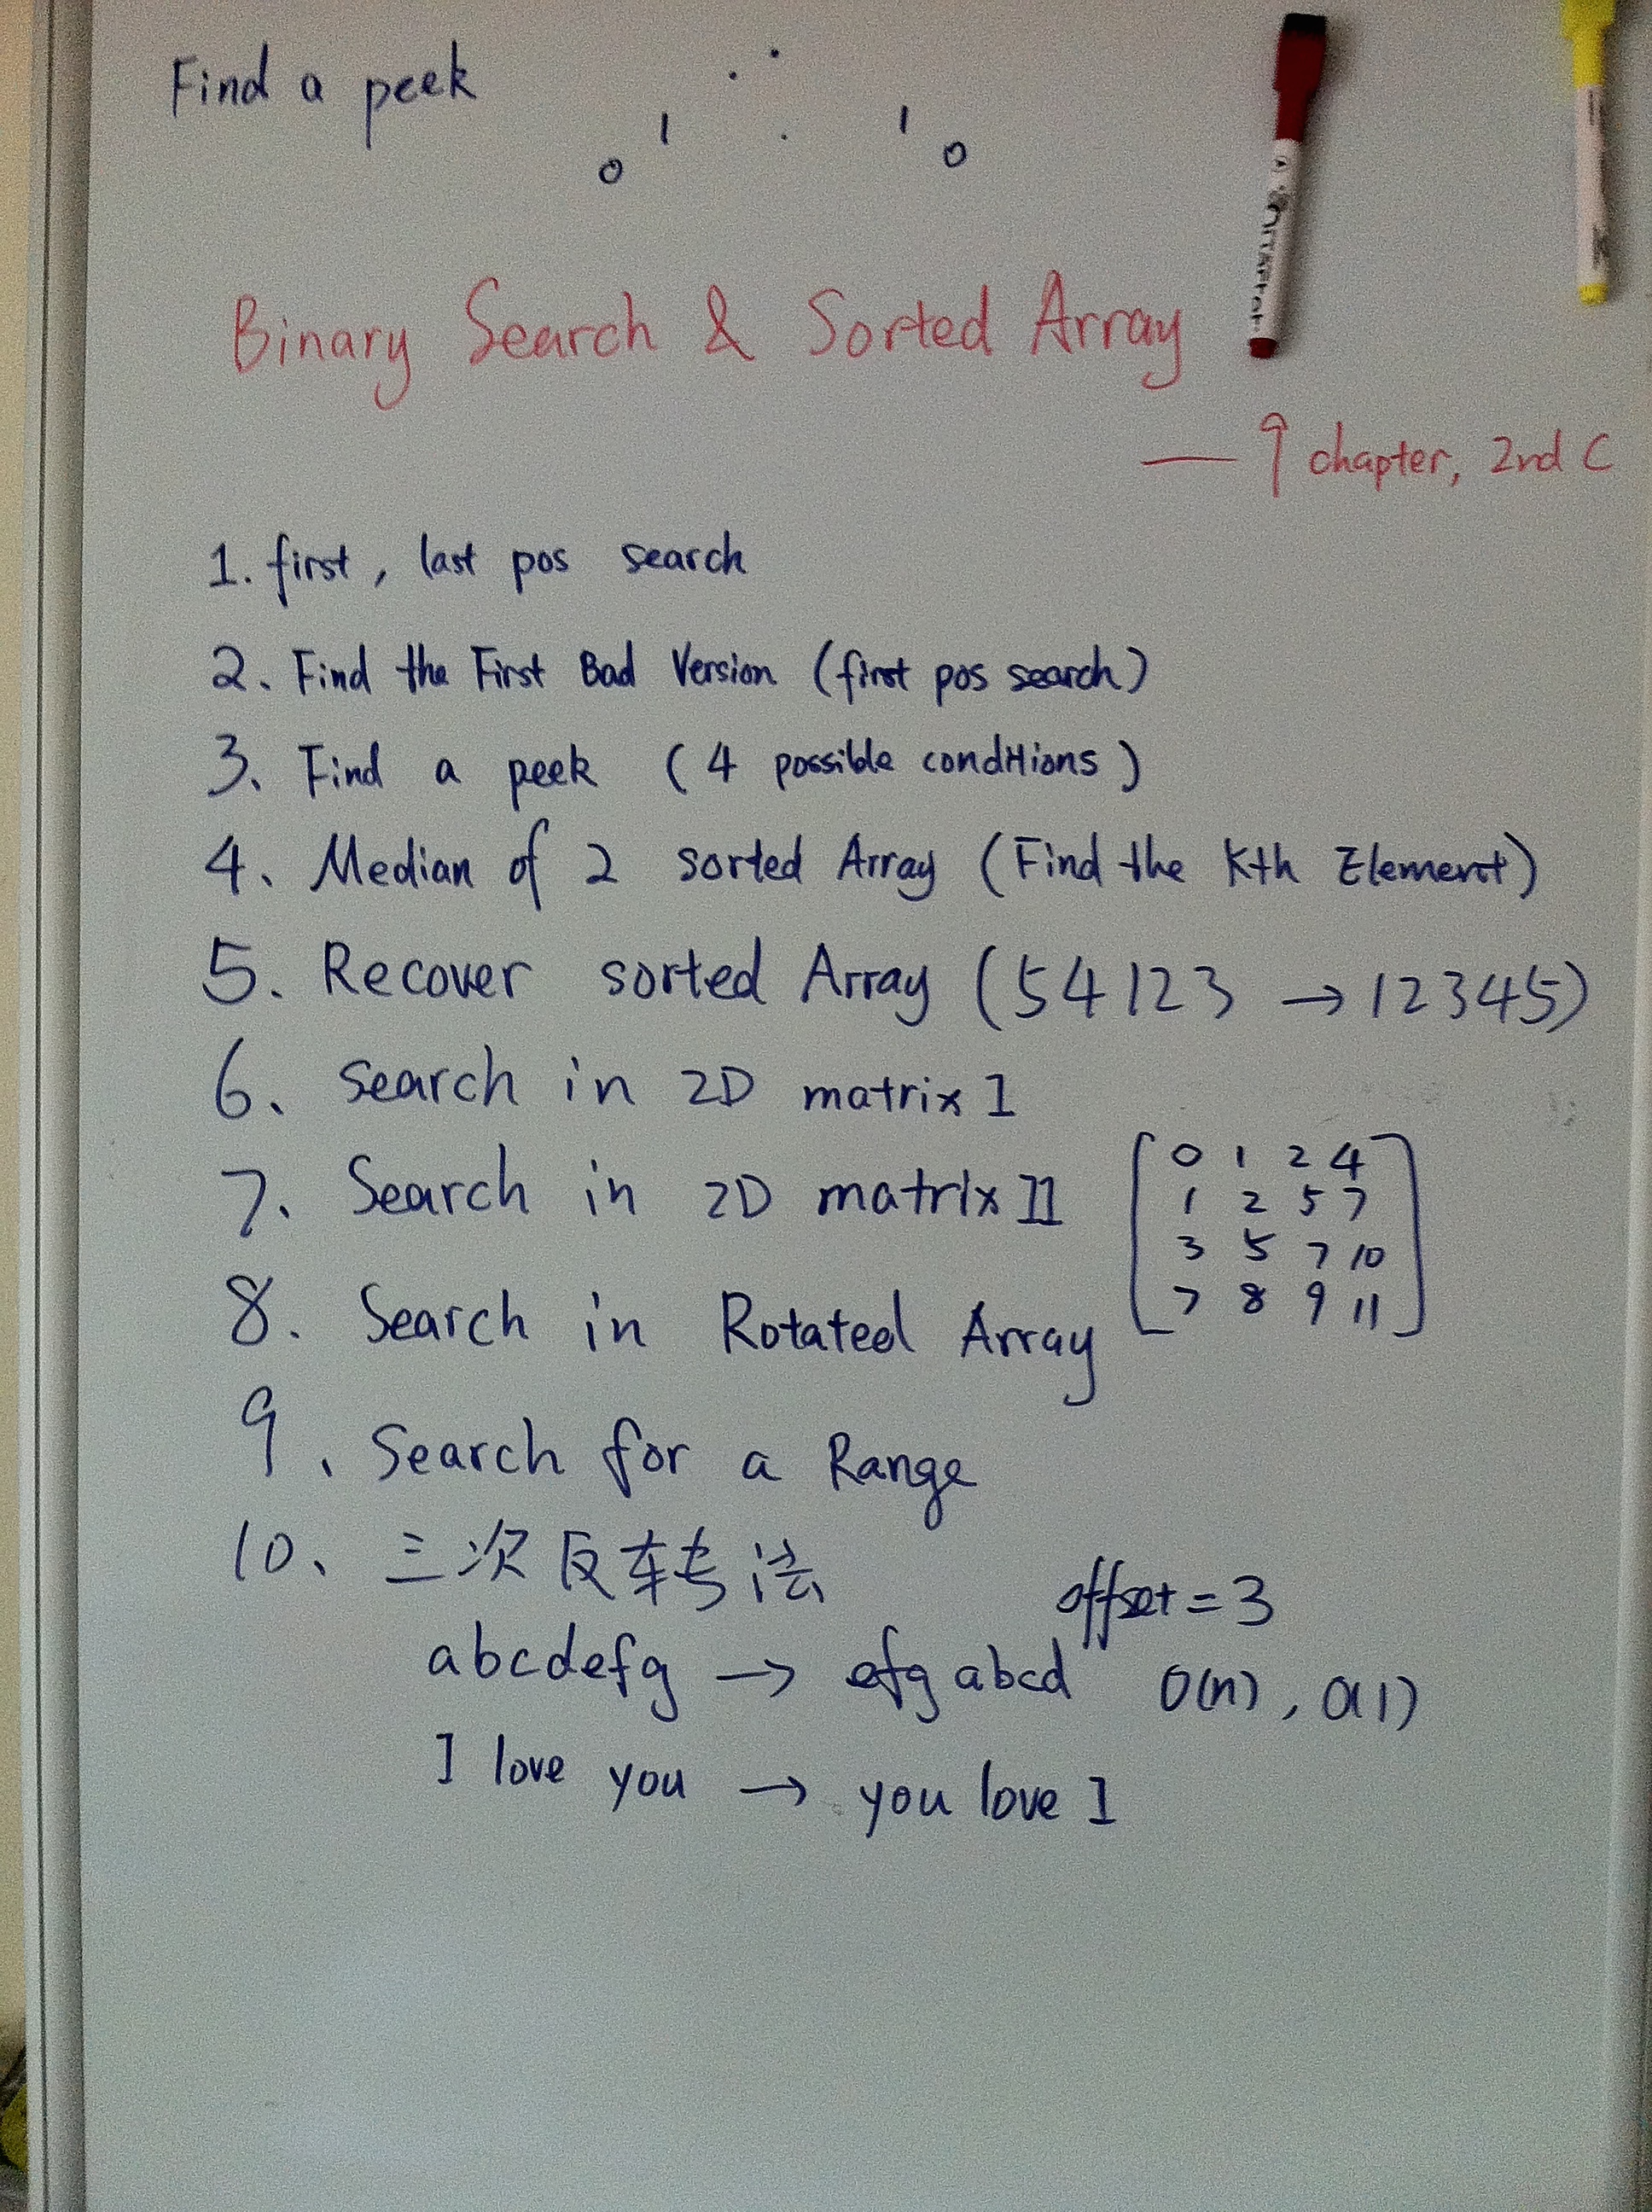 Find a peek
0 1 . . . . 1 0
Binary Search & Sorted Array
— 9 chapter, 2nd C
1. first, last pos search
2. Find the First Bad Version (first pos search)
3. Find a peek (4 possible conditions)
4. Median of 2 sorted Array (Find the Kth Element)
5. Recover sorted Array (54123 → 12345)
6. Search in 2D matrix I
7. Search in 2D matrix II
0 1 2 4
1 2 5 7
3 5 7 10
7 8 9 11
8. Search in Rotated Array
9. Search for a Range
10. 三次反转法
offset = 3
abcdefg → efg abcd O(n), O(1)
I love you → you love I